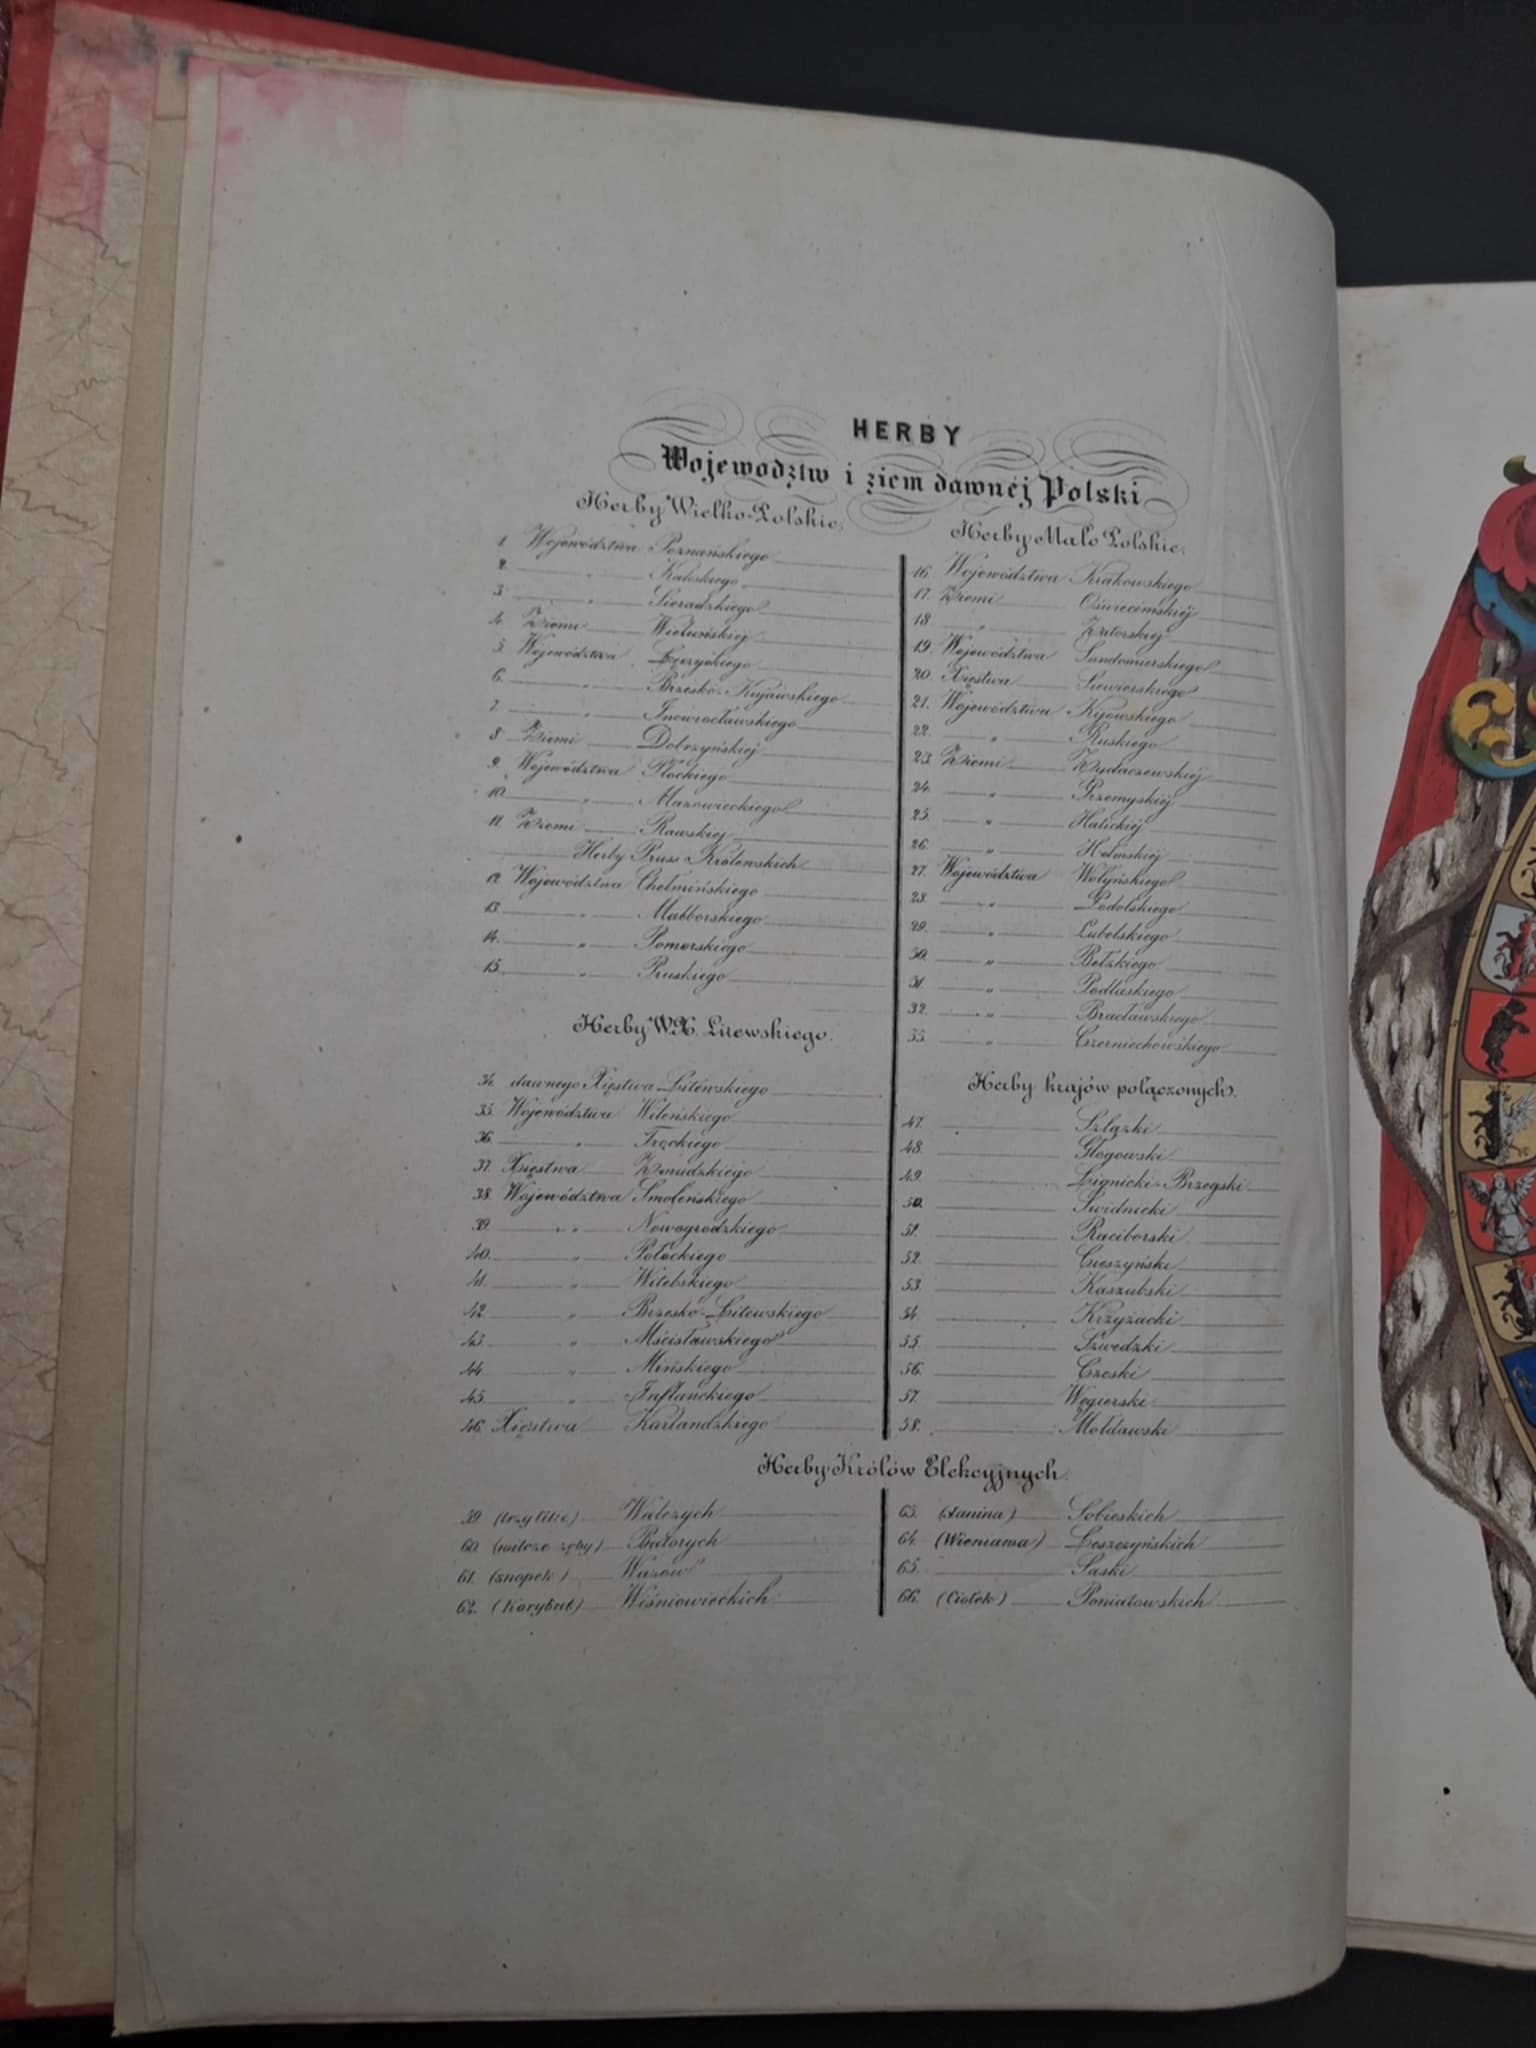 HERBY
Wojewodztw i ziem dawnéj Polski
Herby Wielko-Polskie,
1. Województwa Poznańskiego
2. " Kaliskiego
3. " Sieradzkiego
4. Ziemi Wieluńskiej
5. Województwa Łęczyckiego
6. " Brzesko-Kujawskiego
7. " Inowrocławskiego
8. Ziemi Dobrzyńskiej
9. Województwa Płockiego
10. " Mazowieckiego
11. Ziemi Rawskiej
Herby Pruss Królewskich
12. Województwa Chełmińskiego
13. " Malborskiego
14. " Pomorskiego
15. " Pruskiego
Herby W.X. Litewskiego.
34. dawnego Xięstwa Litewskiego
35. Województwa Wileńskiego
36. " Trockiego
37. Xięstwa Żmudzkiego
38. Województwa Smoleńskiego
39. " Nowogrodzkiego
40. " Połockiego
41. " Witebskiego
42. " Brzesko-Litewskiego
43. " Mścisławskiego
44. " Mińskiego
45. " Inflanckiego
46. Xięstwa Kurlandzkiego
Herby Mało Polskie.
16. Województwa Krakowskiego
17. Ziemi Oświecimskiéj
18. " Zatorskiéj
19. Województwa Sandomierskiego
20. Xięstwa Siewierskiego
21. Województwa Kijowskiego
22. " Ruskiego
23. Ziemi Żydaczewskiéj
24. " Przemyskiéj
25. " Halickiéj
26. " Hełmskiéj
27. Województwa Wołyńskiego
28. " Podolskiego
29. " Lubelskiego
30. " Bełzkiego
31. " Podlaskiego
32. " Bracławskiego
33. " Czerniechowskiego
Herby krajów połączonych.
47. Szląski
48. Głogowski
49. Lignicki-Brzegski
50. Swidnicki
51. Raciborski
52. Cieszyński
53. Kaszubski
54. Krzyżacki
55. Szwedzki
56. Czeski
57. Węgierski
58. Mołdawski
Herby Królów Elekcyjnych.
59. (trzy lilie) Walezych
60. (wilcze zęby) Batorych
61. (snopek) Wazów
62. (Korybut) Wiśniowieckich
63. (Janina) Sobieskich
64. (Wieniawa) Leszczyńskich
65. Saski
66. (Ciołek) Poniatowskich